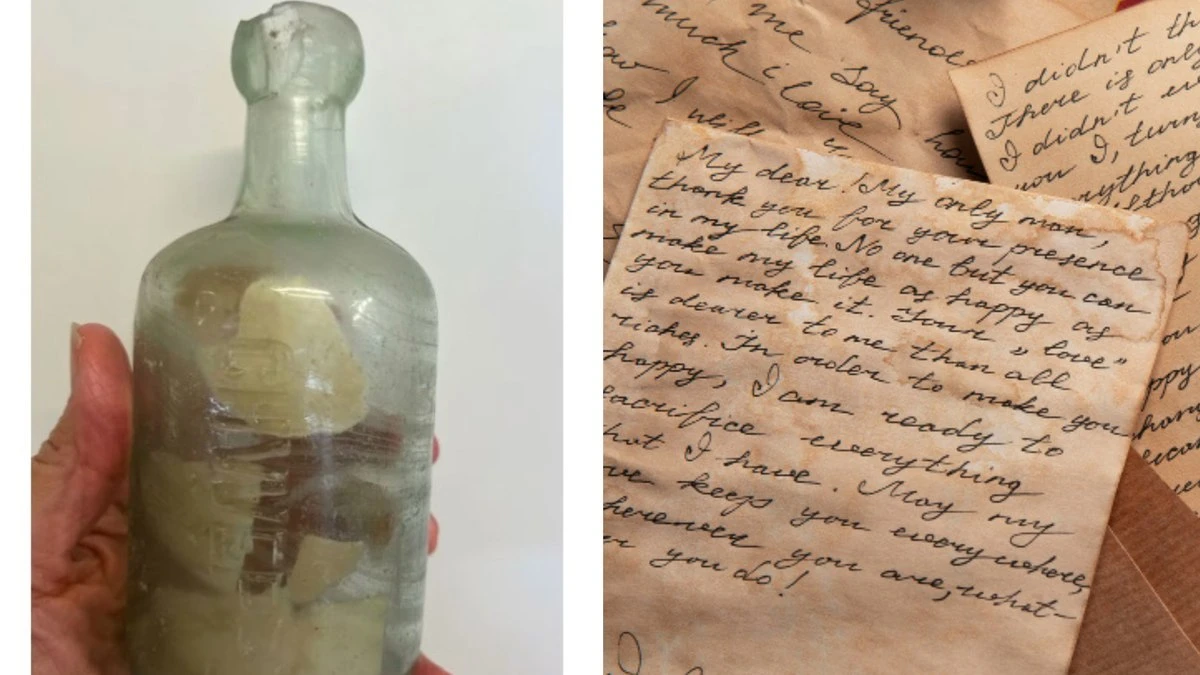 friends
me say
much i love
I will
I didn't
There is only
I didn't
you I, turn
everything
My dear! My only man,
thank you for your presence
in my life. No one but you can
make my life as happy as
you make it. Your „ love"
is dearer to me than all
riches. In order to make you
happy, I am ready to
sacrifice everything
I have. May my
keeps you everywhere,
wherever you are, what-
you do!